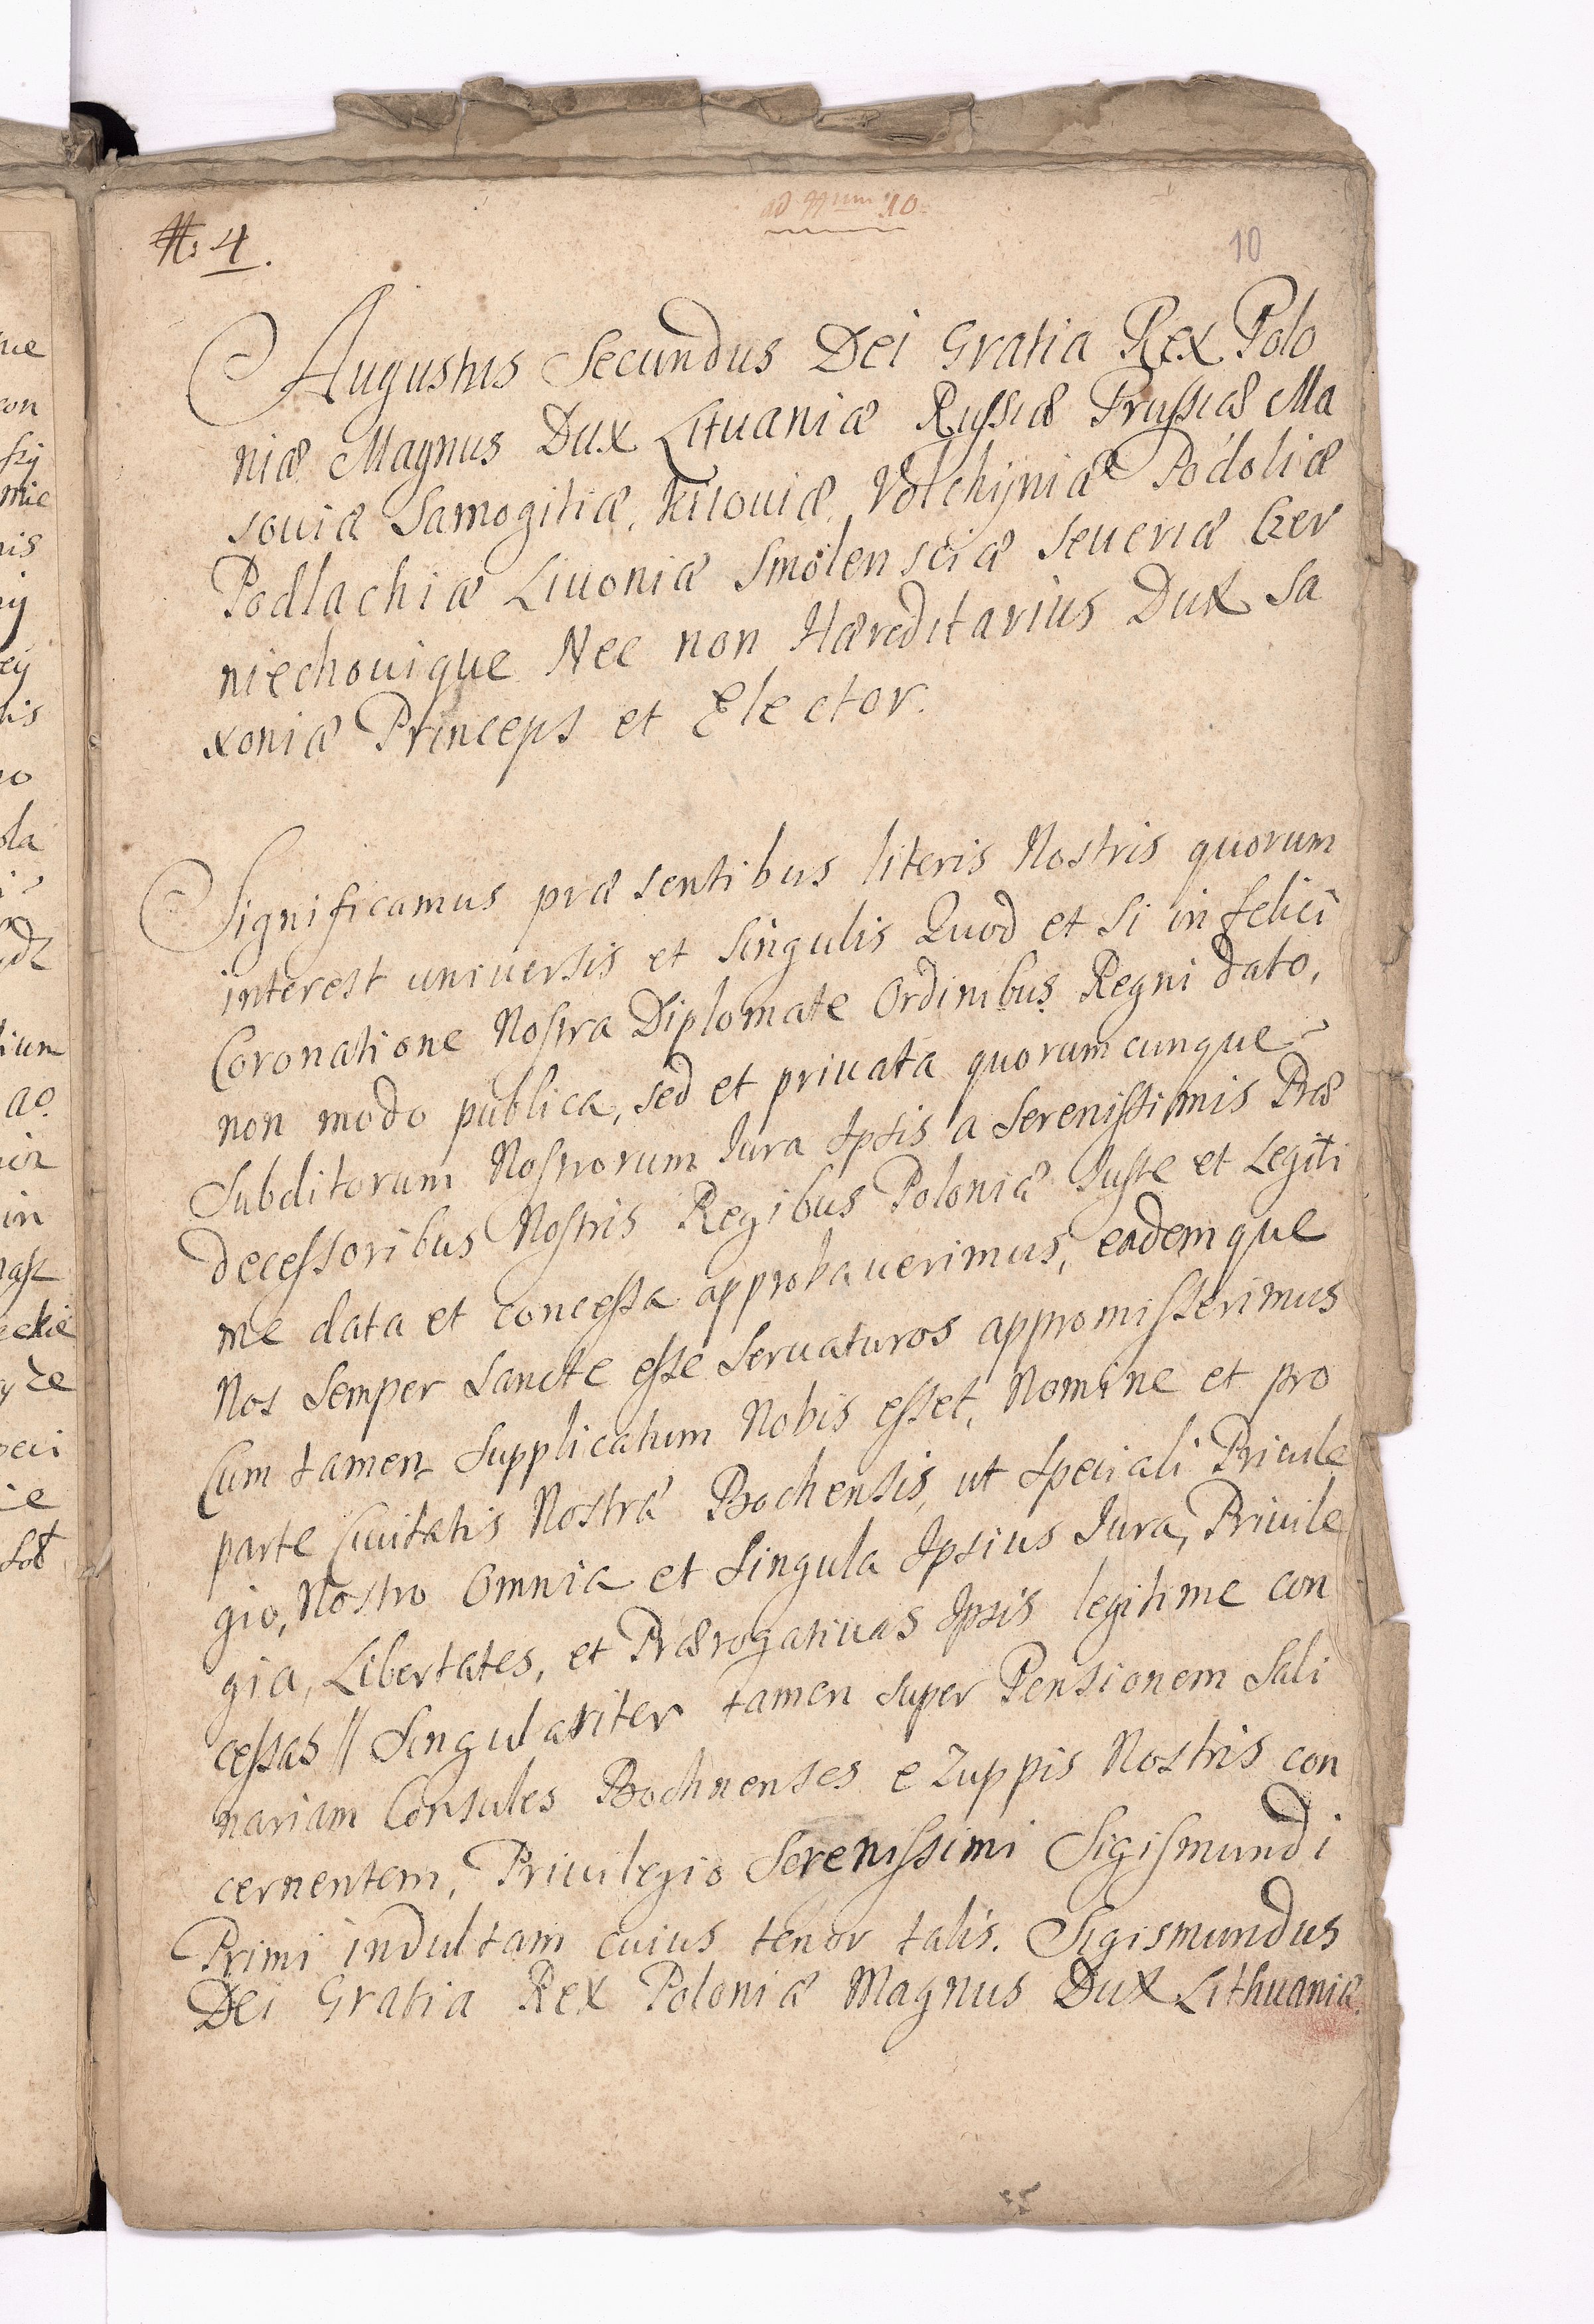 #: 4.
ad Nrum 10.
10
Augustus Secundus Dei Gratia Rex Polo
niæ Magnus Dux Lituaniæ Russiæ Prussiæ Ma
souiæ Samogitiæ, Kiiouiæ, Volchÿniæ Podoliæ
Podlachiæ Liuoniæ Smolensciæ Seueriæ Czer
niechouique Nec non Hæreditarius Dux Sa
xoniæ Princeps et Elector.
Significamus præsentibus literis Nostris quorum
interest uniuersis et Singulis Quod et si in felici
Coronatione Nostra Diplomate Ordinibus Regni dato,
non modo publica, sed et priuata quorumcunque
Subditorum Nostrorum Iura Ipsis a Serenissimis Præ
decessoribus Nostris Regibus Poloniæ Iuste et Legiti
me data et concessa approbauerimus, eademque
Nos Semper Sancte esse Seruaturos appromisserimus
Cum tamen Supplicatum Nobis esset, Nomine et pro
parte Ciuitatis Nostræ Bochensis, ut Speciali Priuile
gio, Nostro Omnia et Singula Ipsius Iura, Priuile
gia, Libertates, et Prærogatiuas Ipsis legitime con
cessas // Singulariter tamen super Pensionem Sali
nariam Consules Bochnenses e Zuppis Nostris con
cernentem, Priuilegio Serenissimi Sigismundi
Primi indultam cuius tenor talis. Sigismundus
Dei Gratia Rex Poloniæ Magnus Dux Lithuaniæ